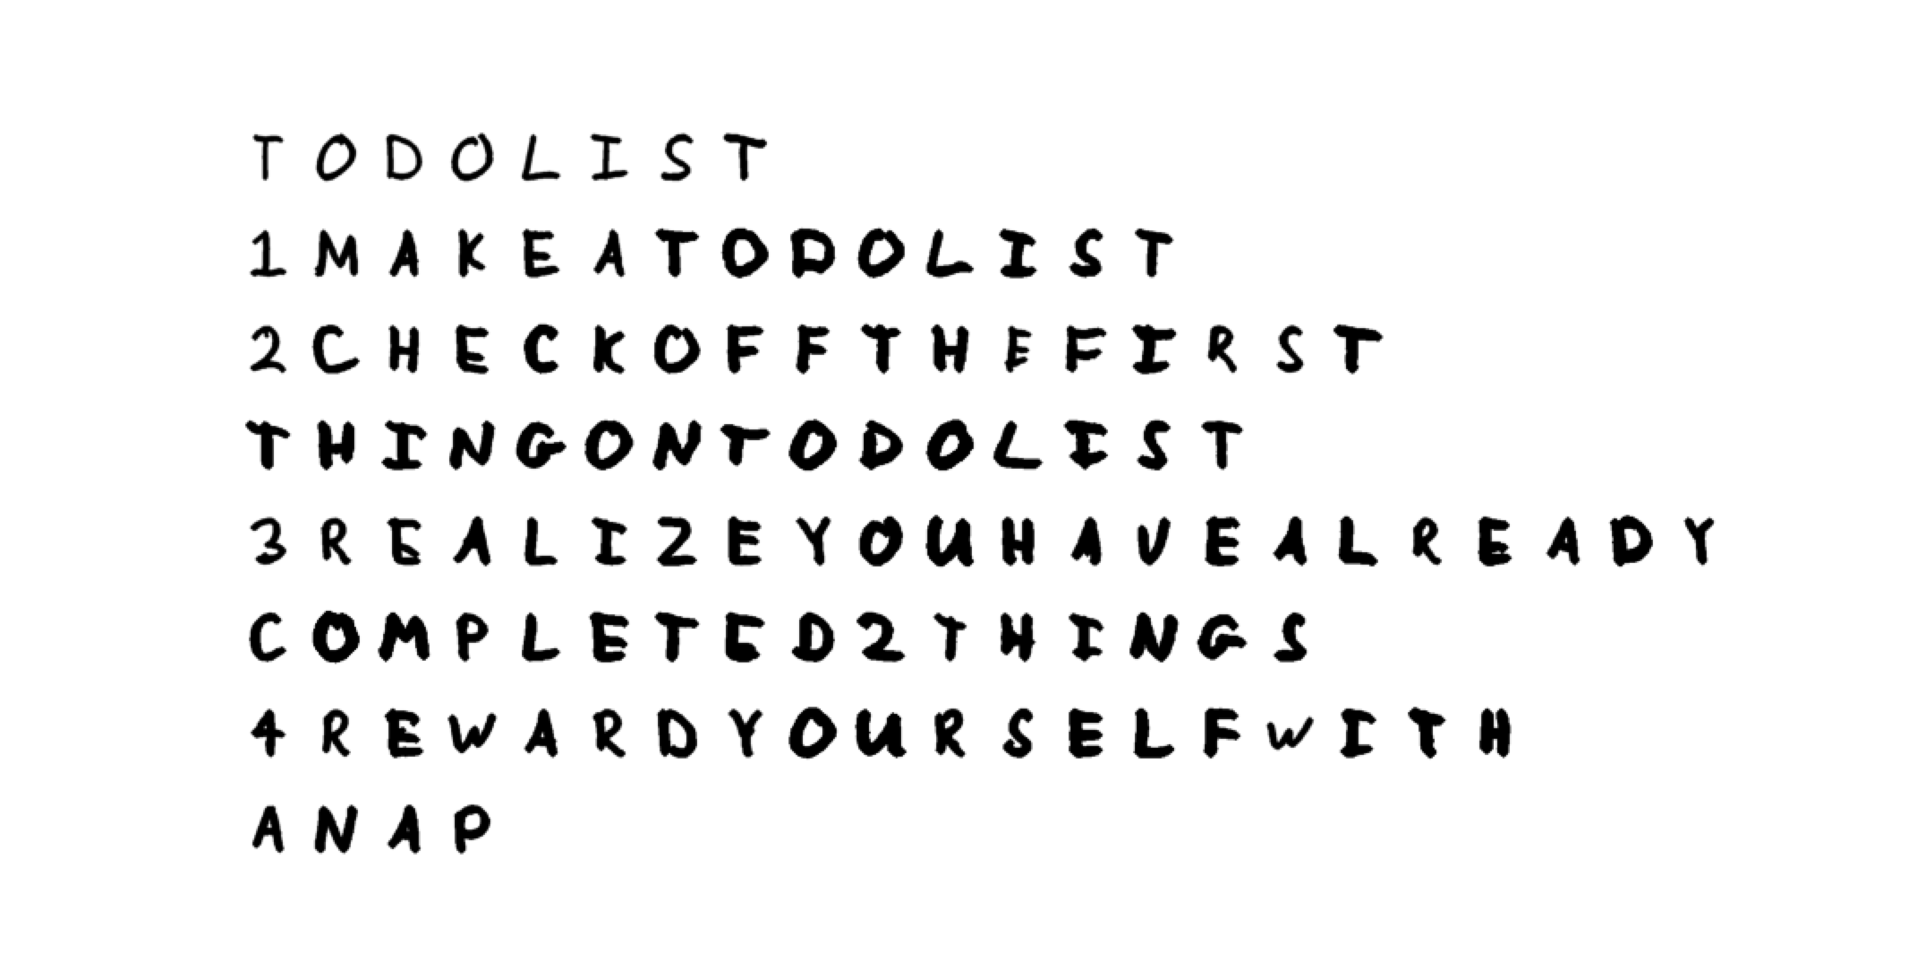 TODOLIST
1MAKEATODOLIST
2CHECKOFFTHEFIRST
THINGONTODOLIST
3REALIZEYOUHAVEALREADY
COMPLETED2THINGS
4REWARDYOURSELFWITH
ANAP